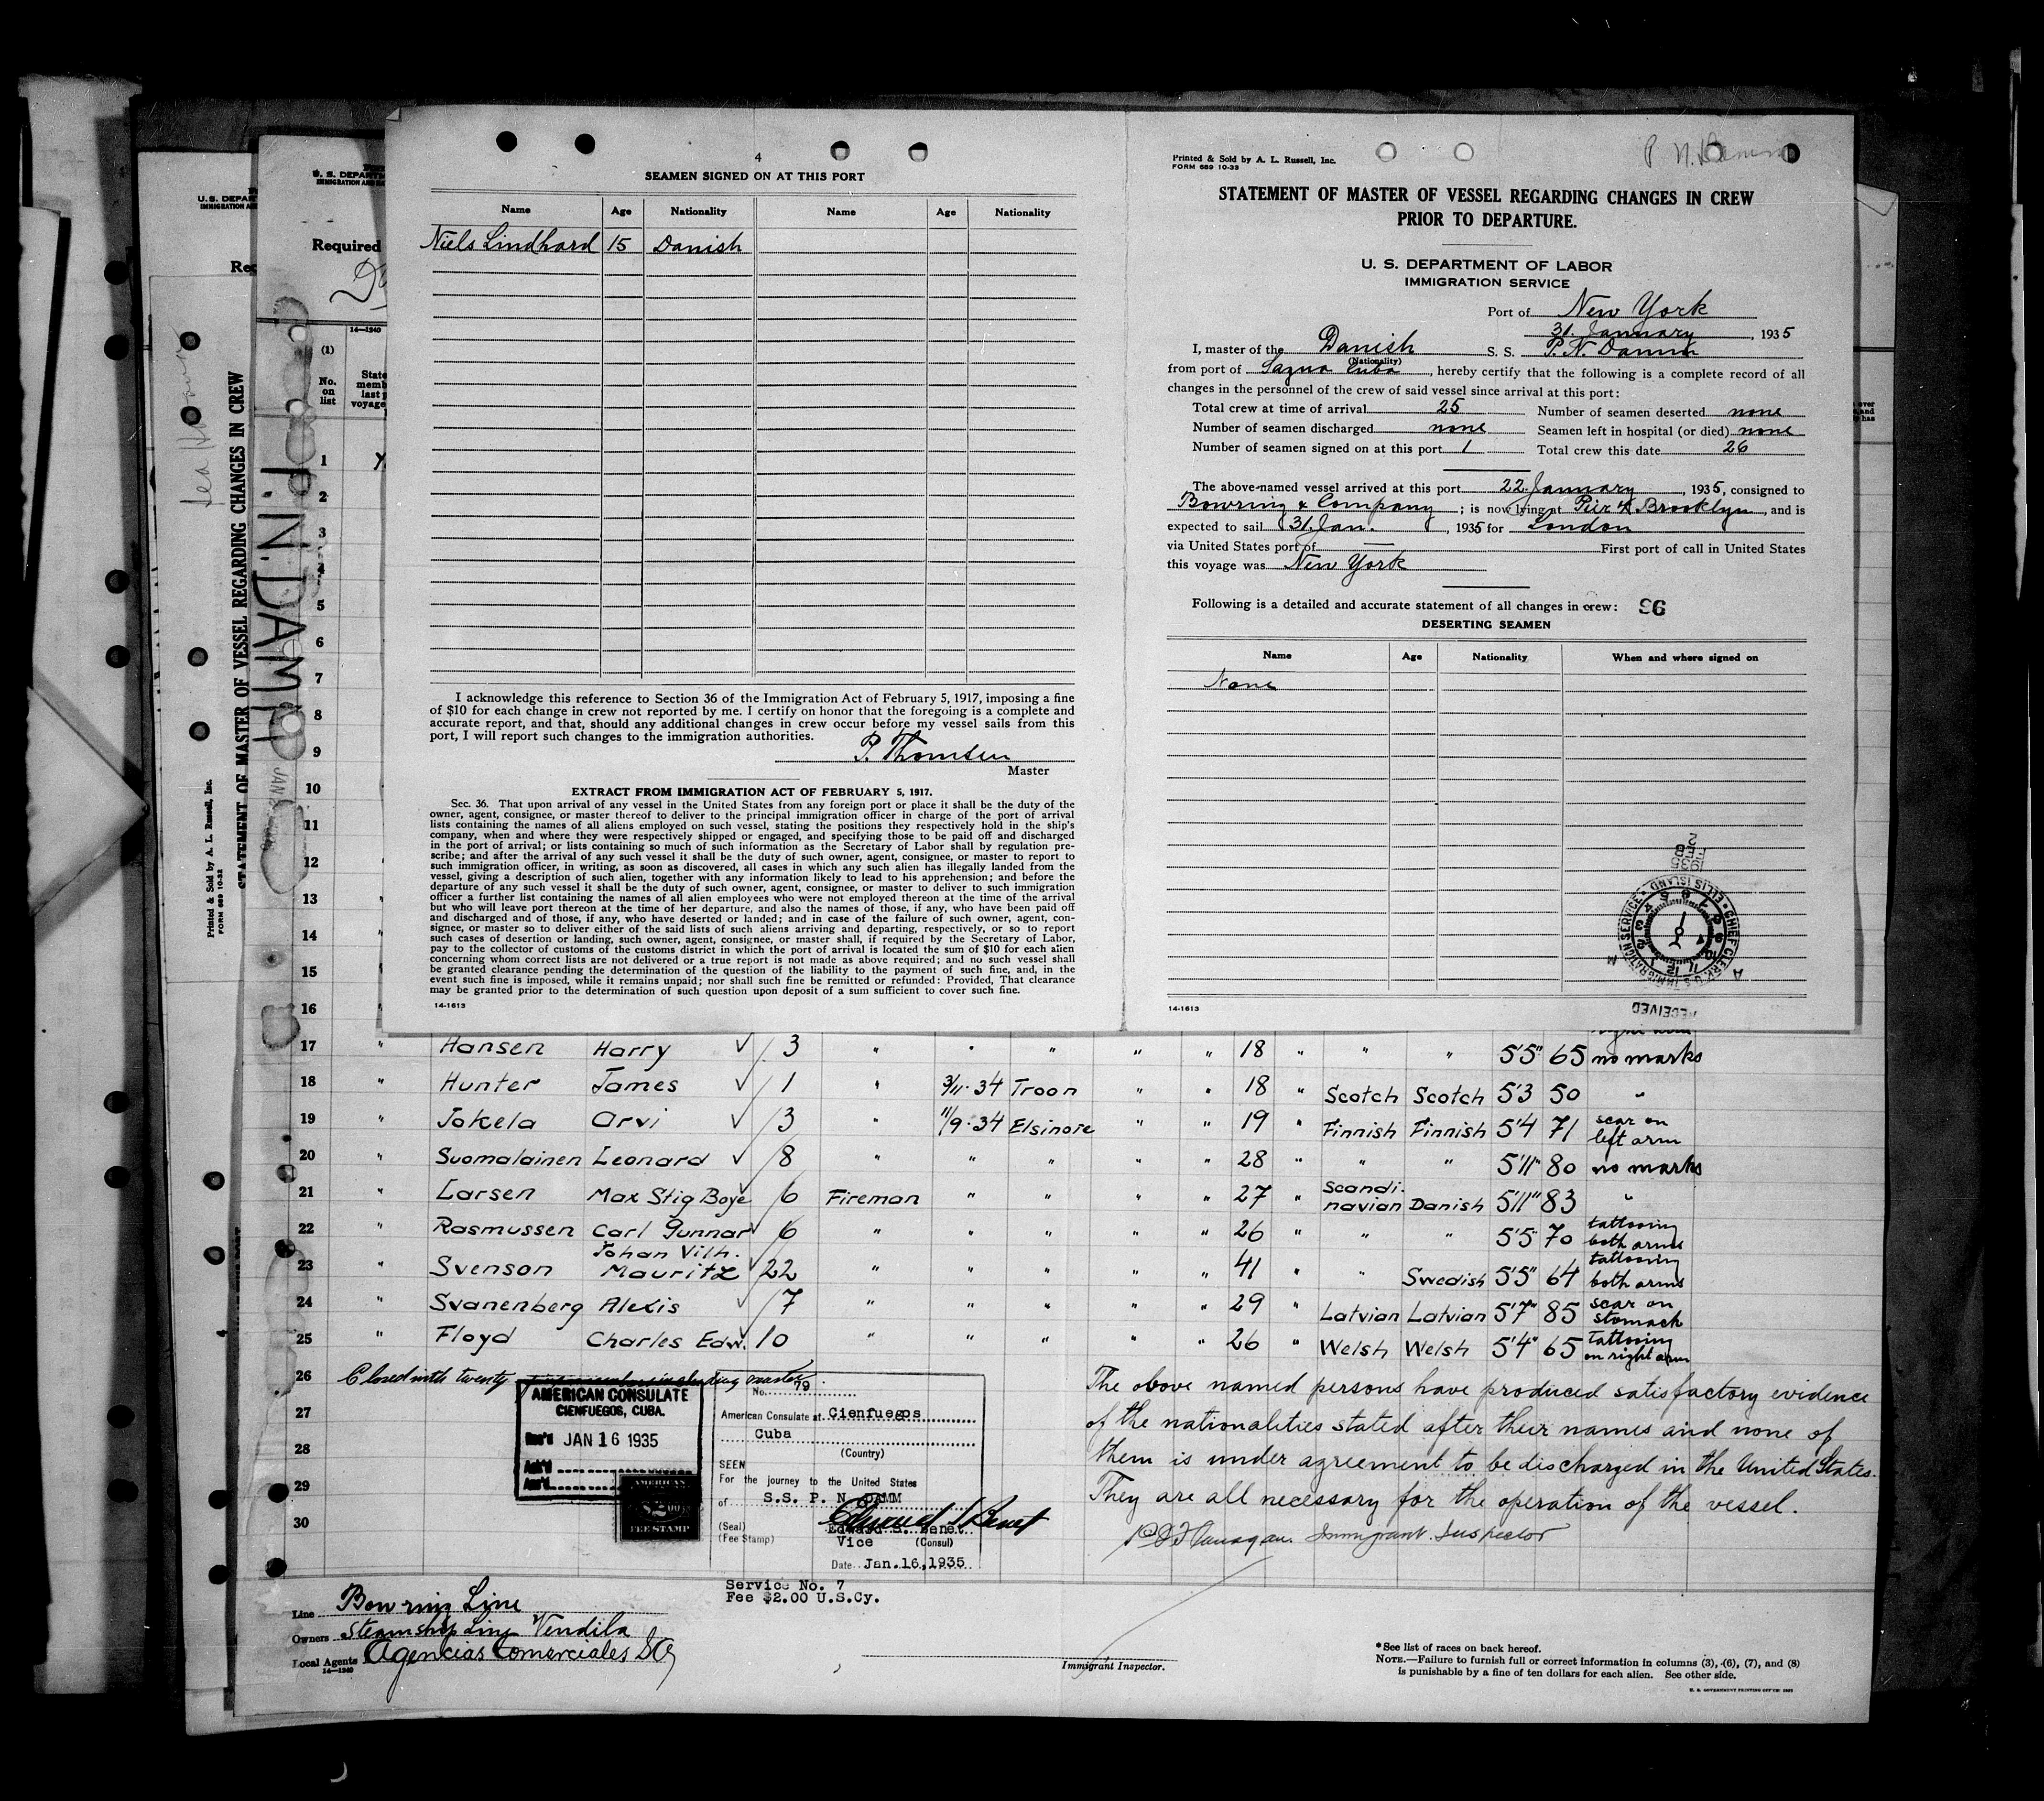 4
SEAMEN SIGNED ON AT THIS PORT
Name Age Nationality Name Age Nationality
Niels Lindhard 15 Danish
I acknowledge this reference to Section 36 of the Immigration Act of February 5, 1917, imposing a fine
of $10 for each change in crew not reported by me. I certify on honor that the foregoing is a complete and
accurate report, and that, should any additional changes in crew occur before my vessel sails from this
port, I will report such changes to the immigration authorities.
P. Thomsen
Master
EXTRACT FROM IMMIGRATION ACT OF FEBRUARY 5, 1917.
Sec. 36. That upon arrival of any vessel in the United States from any foreign port or place it shall be the duty of the
owner, agent, consignee, or master thereof to deliver to the principal immigration officer in charge of the port of arrival
lists containing the names of all aliens employed on such vessel, stating the positions they respectively hold in the ship's
company, when and where they were respectively shipped or engaged, and specifying those to be paid off and discharged
in the port of arrival; or lists containing so much of such information as the Secretary of Labor shall by regulation pre-
scribe; and after the arrival of any such vessel it shall be the duty of such owner, agent, consignee, or master to report to
such immigration officer, in writing, as soon as discovered, all cases in which any such alien has illegally landed from the
vessel, giving a description of such alien, together with any information likely to lead to his apprehension; and before the
departure of any such vessel it shall be the duty of such owner, agent, consignee, or master to deliver to such immigration
officer a further list containing the names of all alien employees who were not employed thereon at the time of the arrival
but who will leave port thereon at the time of her departure, and also the names of those, if any, who have been paid off
and discharged and of those, if any, who have deserted or landed; and in case of the failure of such owner, agent, con-
signee, or master so to deliver either of the said lists of such aliens arriving and departing, respectively, or so to report
such cases of desertion or landing, such owner, agent, consignee, or master shall, if required by the Secretary of Labor,
pay to the collector of customs of the customs district in which the port of arrival is located the sum of $10 for each alien
concerning whom correct lists are not delivered or a true report is not made as above required; and no such vessel shall
be granted clearance pending the determination of the question of the liability to the payment of such fine, and, in the
event such fine is imposed, while it remains unpaid; nor shall such fine be remitted or refunded: Provided, That clearance
may be granted prior to the determination of such question upon deposit of a sum sufficient to cover such fine.
14-1613
Printed & Sold by A. L. Russell, Inc.
FORM 689 10-33
P N. Damm
STATEMENT OF MASTER OF VESSEL REGARDING CHANGES IN CREW
PRIOR TO DEPARTURE.
U. S. DEPARTMENT OF LABOR
IMMIGRATION SERVICE
Port of New York
31. January, 1935
I, master of the Danish S. S. P. N. Damm
(Nationality)
from port of Sagua Cuba, hereby certify that the following is a complete record of all
changes in the personnel of the crew of said vessel since arrival at this port:
Total crew at time of arrival 25 Number of seamen deserted none
Number of seamen discharged none Seamen left in hospital (or died) none
Number of seamen signed on at this port 1 Total crew this date 26
The above-named vessel arrived at this port 22. January, 1935, consigned to
Bowring & Company; is now lying at Pier 4 Brooklyn, and is
expected to sail 31. Jan., 1935 for London
via United States port of — First port of call in United States
this voyage was New York
Following is a detailed and accurate statement of all changes in crew: 96
DESERTING SEAMEN
Name Age Nationality When and where signed on
None
RECEIVED
CHIEF CLERK U.S. IMMIGRATION SERVICE ELLIS ISLAND
1935 FEB 2
14-1613
U. S. DEPART
IMMIGRATION AN
Required
14-1240
(1)
No. on list
State
memb
last
voyage
P. N. DAMM
JAN
STATEMENT OF MASTER OF VESSEL REGARDING CHANGES IN CREW
Printed & Sold by A. L. Russell, Inc.
FORM 689 10-32
1
2
3
4
5
6
7
8
9
10
11
12
13
14
15
16
17 " Hansen Harry √ 3 " " " " " 18 " " " 5'5" 65 no marks
18 " Hunter James √ 1 " 3/11.34 Troon " " 18 " Scotch Scotch 5'3 50 "
19 " Jokela Arvi √ 3 " 11/9.34 Elsinore " " 19 " Finnish Finnish 5'4 71 scar on left arm
20 " Suomalainen Leonard √ 8 " " " " " 28 " " " 5'11" 80 no marks
21 " Larsen Max Stig Boye 6 Fireman " " " " 27 " Scandinavian Danish 5'11" 83 "
22 " Rasmussen Carl Gunnar √ 6 " " " " " 26 " " " 5'5" 70 tattooing both arms
23 " Svenson Johan Vilh. Mauritz √ 22 " " " " " 41 " " Swedish 5'5" 64 tattooing both arms
24 " Svanenberg Alexis √ 7 " " " " " 29 " Latvian Latvian 5'7" 85 scar on stomach
25 " Floyd Charles Edw. 10 " " " " " 26 " Welsh Welsh 5'4" 65 tattooing on right arm
26 Closed with twenty including master.
27
28
29
30
AMERICAN CONSULATE
CIENFUEGOS, CUBA.
Rec'd JAN 16 1935
Ack'd
Ans'd
AMERICAN
$2.00
FEE STAMP
No. 79
American Consulate at Cienfuegos
Cuba
(Country)
SEEN
For the journey to the United States
of S.S. P. N. DAMM
(Seal) Edward S. Benet
(Fee Stamp) Vice (Consul)
Date Jan.16,1935
Service No. 7
Fee $2.00 U.S.Cy.
The above named persons have produced satisfactory evidence
of the nationalities stated after their names and none of
them is under agreement to be discharged in the United States.
They are all necessary for the operation of the vessel.
Flanagan. Immigrant Inspector
Line Bowring Line
Owners Steamship Line Vendila
Local Agents Agencias Comerciales SA
14-1240
Immigrant Inspector.
*See list of races on back hereof.
NOTE.—Failure to furnish full or correct information in columns (3), (6), (7), and (8)
is punishable by a fine of ten dollars for each alien. See other side.
U. S. GOVERNMENT PRINTING OFFICE